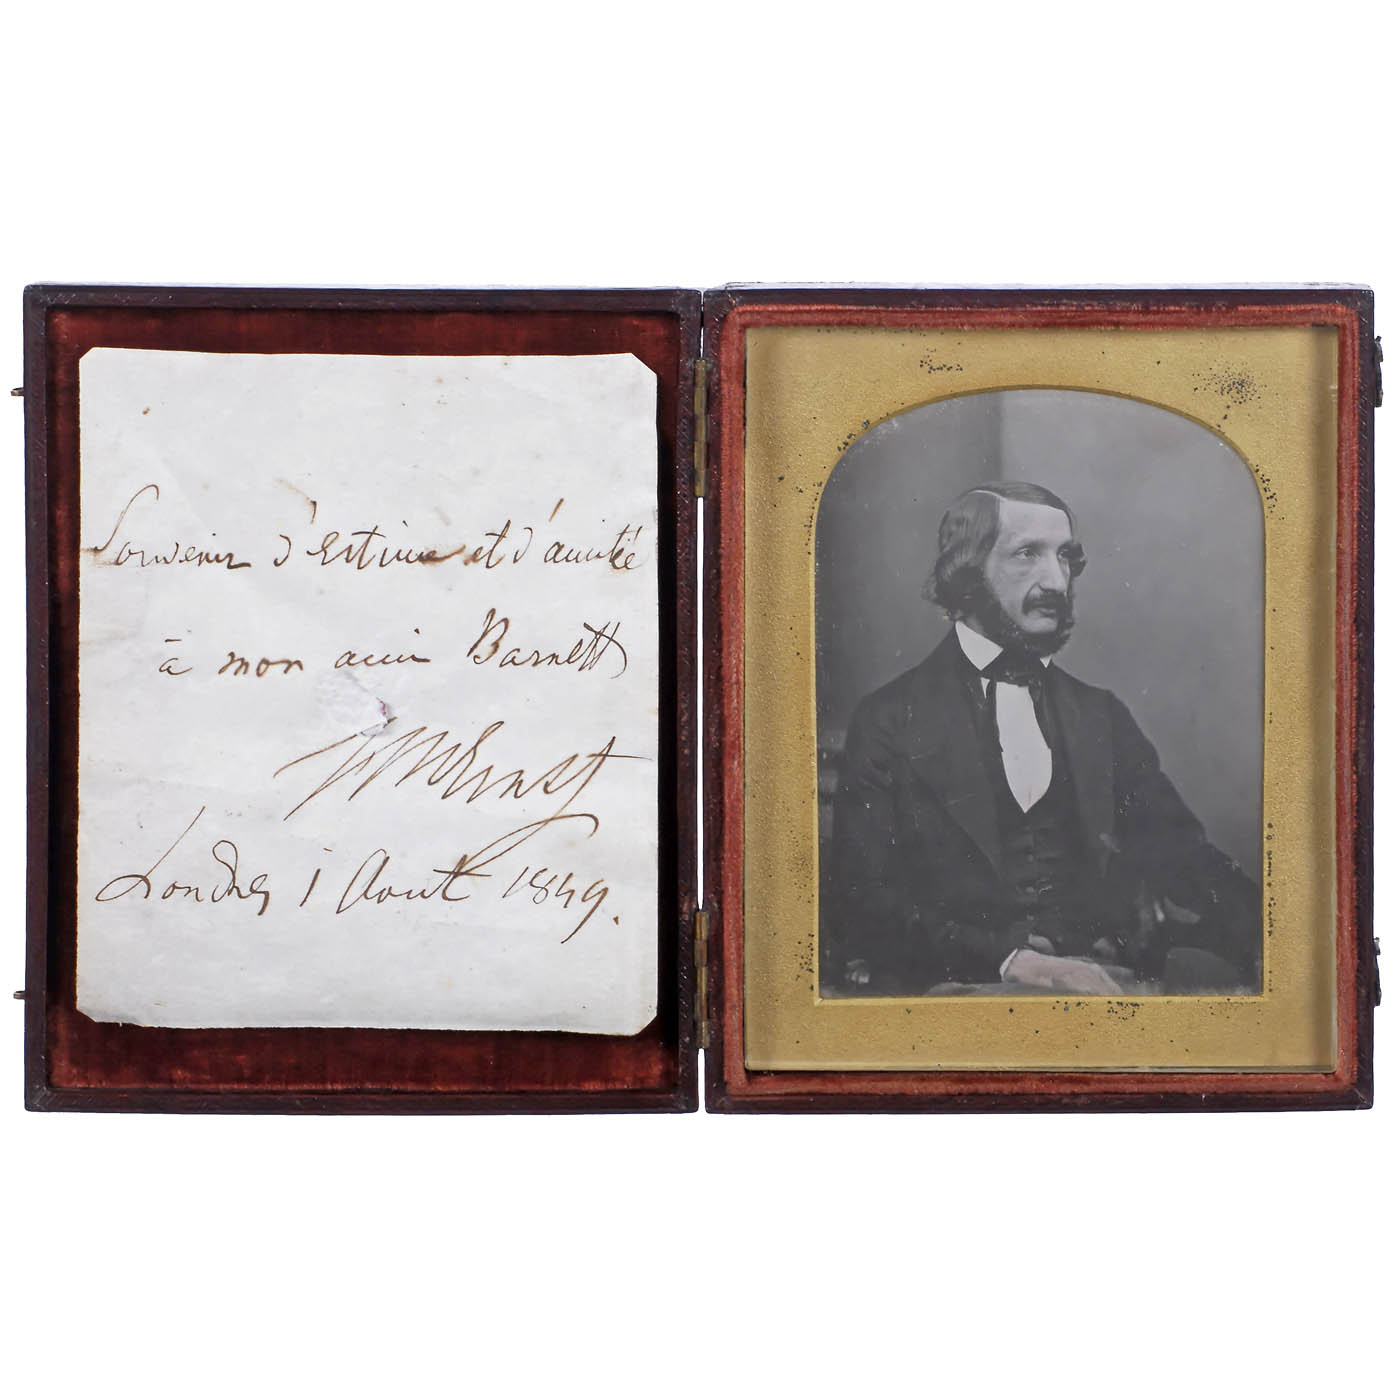 Souvenir d'Estime et d'amitié
à mon ami Barnett
HWErnst
Londres 1 Aout 1849.